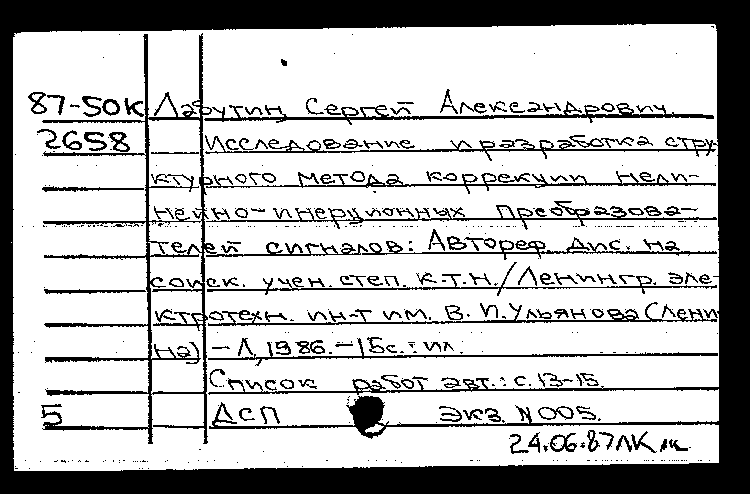 87-50К Лабутин, Сергей Александрович.
2658 Исследование и разработка стру-
ктурного метода коррекции нели-
нейно-инерционных преобразова-
телей сигналов: Автореф. дис. на
соиск. учен. степ. к.т.н./Ленингр. эле-
ктротехн. ин-т им. В. И. Ульянова (Лени
на) -Л, 1986.-15с.: ил.
Список работ авт.: с. 13-15.
5 ДСП экз. N 005.
24.06.87 ЛК